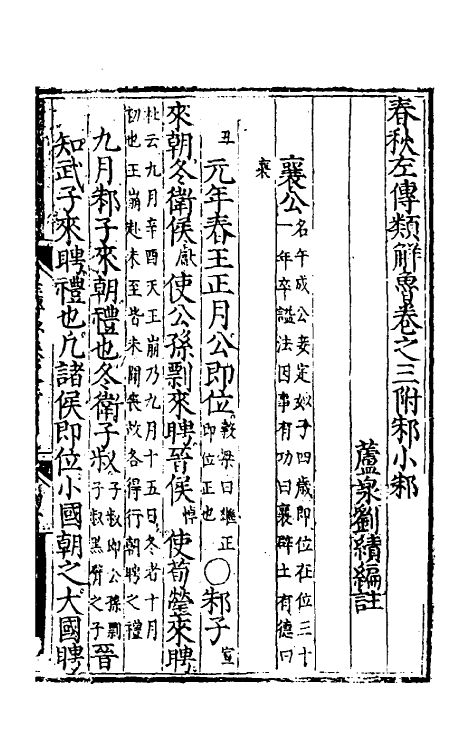 春秋左傳類解魯卷之三附邾小邾
蘆泉劉績編註
襄公名午成公妾定姒子四歲即位在位三十
一年卒謚法因事有功曰襄辟土有德曰
襄
丑元年春王正月公即位穀梁曰繼正
即位正也○邾子宣
來朝冬衛侯獻使公孫剽來聘晉侯悼使荀罃來聘
杜云九月辛酉天王崩乃九月十五日冬者十月
初也王崩赴未至皆未聞喪故各得行朝聘之禮
九月邾子來朝禮也冬衛子叔子叔即公孫剽
子叔黑臂之子晉
知武子來聘禮也凡諸侯即位小國朝之大國聘